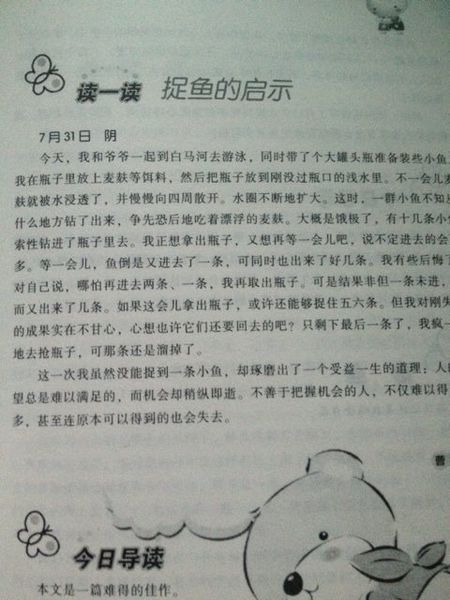 读一读 捉鱼的启示
7月31日 阴
今天，我和爷爷一起到白马河去游泳，同时带了个大罐头瓶准备装些小鱼
我在瓶子里放上麦麸等饵料，然后把瓶子放到刚没过瓶口的浅水里。不一会儿
麸就被水浸透了，并慢慢向四周散开。水圈不断地扩大。这时，一群小鱼不知
什么地方钻了出来，争先恐后地吃着漂浮的麦麸。大概是饿极了，有十几条小
索性钻进了瓶子里去。我正想拿出瓶子，又想再等一会儿吧，说不定进去的会
多。等一会儿，鱼倒是又进去了一条，可同时也出来了好几条。我有些后悔
对自己说，哪怕再进去两条、一条，我再取出瓶子。可是结果非但一条未进，
而又出来了几条。如果这会儿拿出瓶子，或许还能够捉住五六条。但我对刚
的成果实在不甘心，心想也许它们还要回去的吧？只剩下最后一条了，我疯一
地去抢瓶子，可那条还是溜掉了。
这一次我虽然没能捉到一条小鱼，却琢磨出了一个受益一生的道理：人
望总是难以满足的，而机会却稍纵即逝。不善于把握机会的人，不仅难以得
多，甚至连原本可以得到的也会失去。
曹
今日导读
本文是一篇难得的佳作。